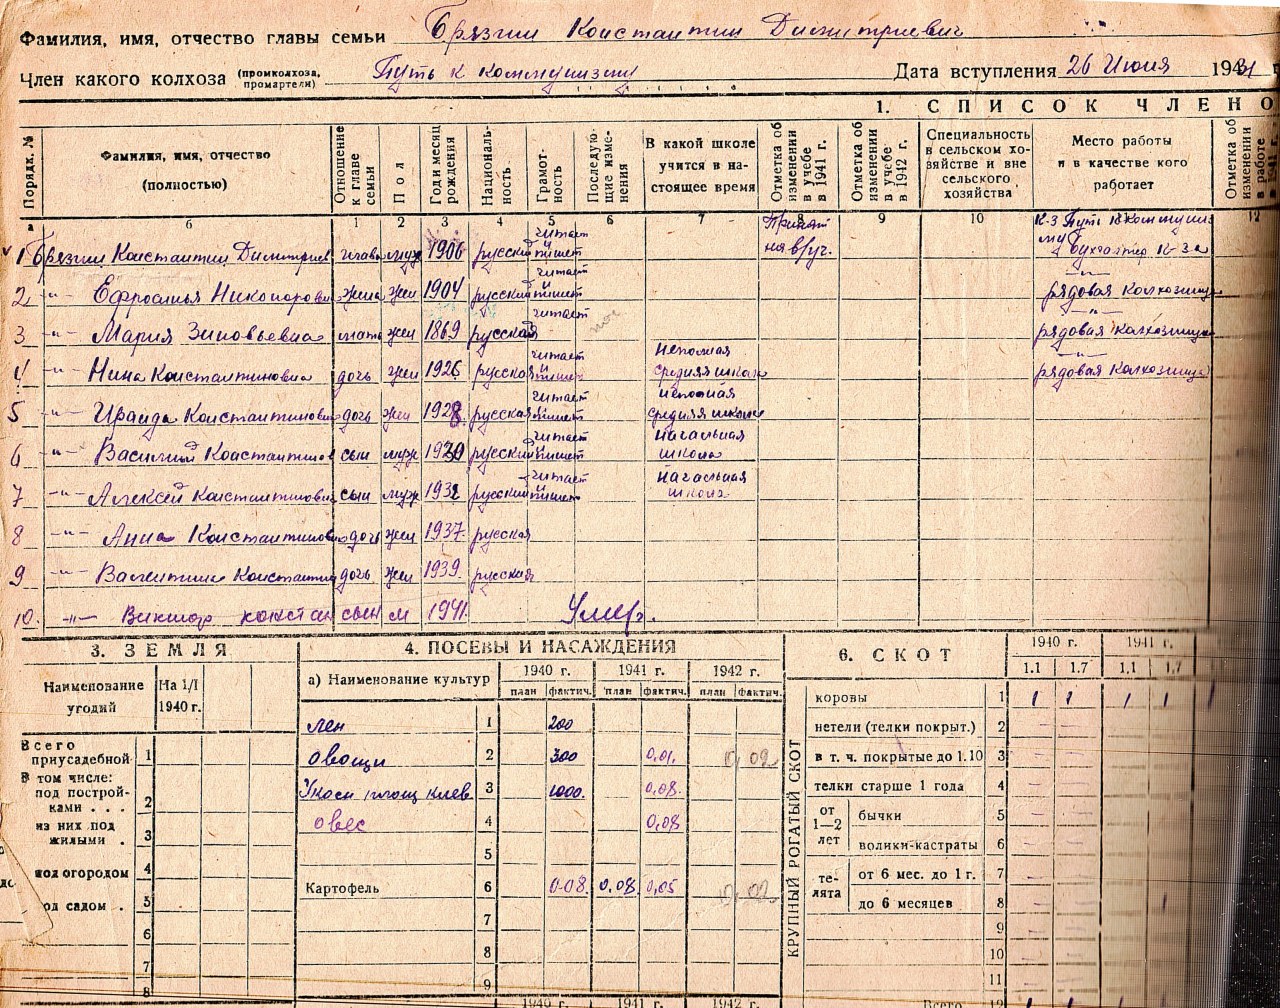 Фамилия, имя, отчество главы семьи Брязгин Константин Димитриевич
Член какого колхоза (промколхоза, промартели) Путь к коммунизму Дата вступления 26 Июня 1931
1. СПИСОК ЧЛЕНО
Порядк. № Фамилия, имя, отчество (полностью) Отношение к главе семьи Пол Год и месяц рождения Националь-ность Грамот-ность Последую-щие изме-нения В какой школе учится в на-стоящее время Отметка об изменении в учебе в 1941 г. Отметка об изменении в учебе в 1942 г. Специальность в сельском хо-зяйстве и вне сельского хозяйства Место работы и в качестве кого работает Отметка об изменении в работе в 1941 г.
а б 1 2 3 4 5 6 7 8 9 10 11 12
1 Брязгин Константин Димитриев глава муж 1906 русский читает и пишет в/уч. бухгалтер к-за
2 -"- Ефросинья Никоноровн жена жен 1904 русский читает и пишет -"- рядовая колхозница
3 -"- Мария Зиновьевна мать жен 1869 русская читает -"- рядовая колхозница
4 -"- Нина Константиновна дочь жен 1926 русская читает и пишет неполная средняя школа -"- рядовая колхозница
5 -"- Ираида Константиновн дочь жен 1928 русская читает и пишет неполная средняя школа
6 -"- Василий Константинов сын муж 1930 русский читает и пишет начальная школа
7 -"- Алексей Константинови сын муж 1932 русский читает и пишет начальная школа
8 -"- Анна Константинов дочь жен 1937 русская
9 -"- Валентина Константин дочь жен 1939 русская
10. -"- Виктор констан сын м 1941 Умер.
3. ЗЕМЛЯ 4. ПОСЕВЫ И НАСАЖДЕНИЯ 6. СКОТ 1940 г. 1941 г.
Наименование угодий На 1/I 1940 г. а) Наименование культур 1940 г. 1941 г. 1942 г. 1.1 1.7 1.1 1.7
план фактич. план фактич. план фактич.
КРУПНЫЙ РОГАТЫЙ СКОТ
коровы 1 1 1 1 1
лен 1 200 нетели (телки покрыт.) 2
Всего приусадебной 1 овощи 2 300 0,01. 0,02 в т. ч. покрытые до 1.10 3
В том числе: под построй-ками . . . 2 3 1000. 0,08. телки старше 1 года 4
из них под жилыми . 3 овес 4 0,08 от 1—2 лет бычки 5
5 волики-кастраты 6
под огородом 4 Картофель 6 0-08. 0,08 0,05 0,02 те-лята от 6 мес. до 1 г. 7
од садом . 5 7 до 6 месяцев 8
6 8 9
7 9 10
8 11
1940 г. 1941 г. 1942 г. Всего 12